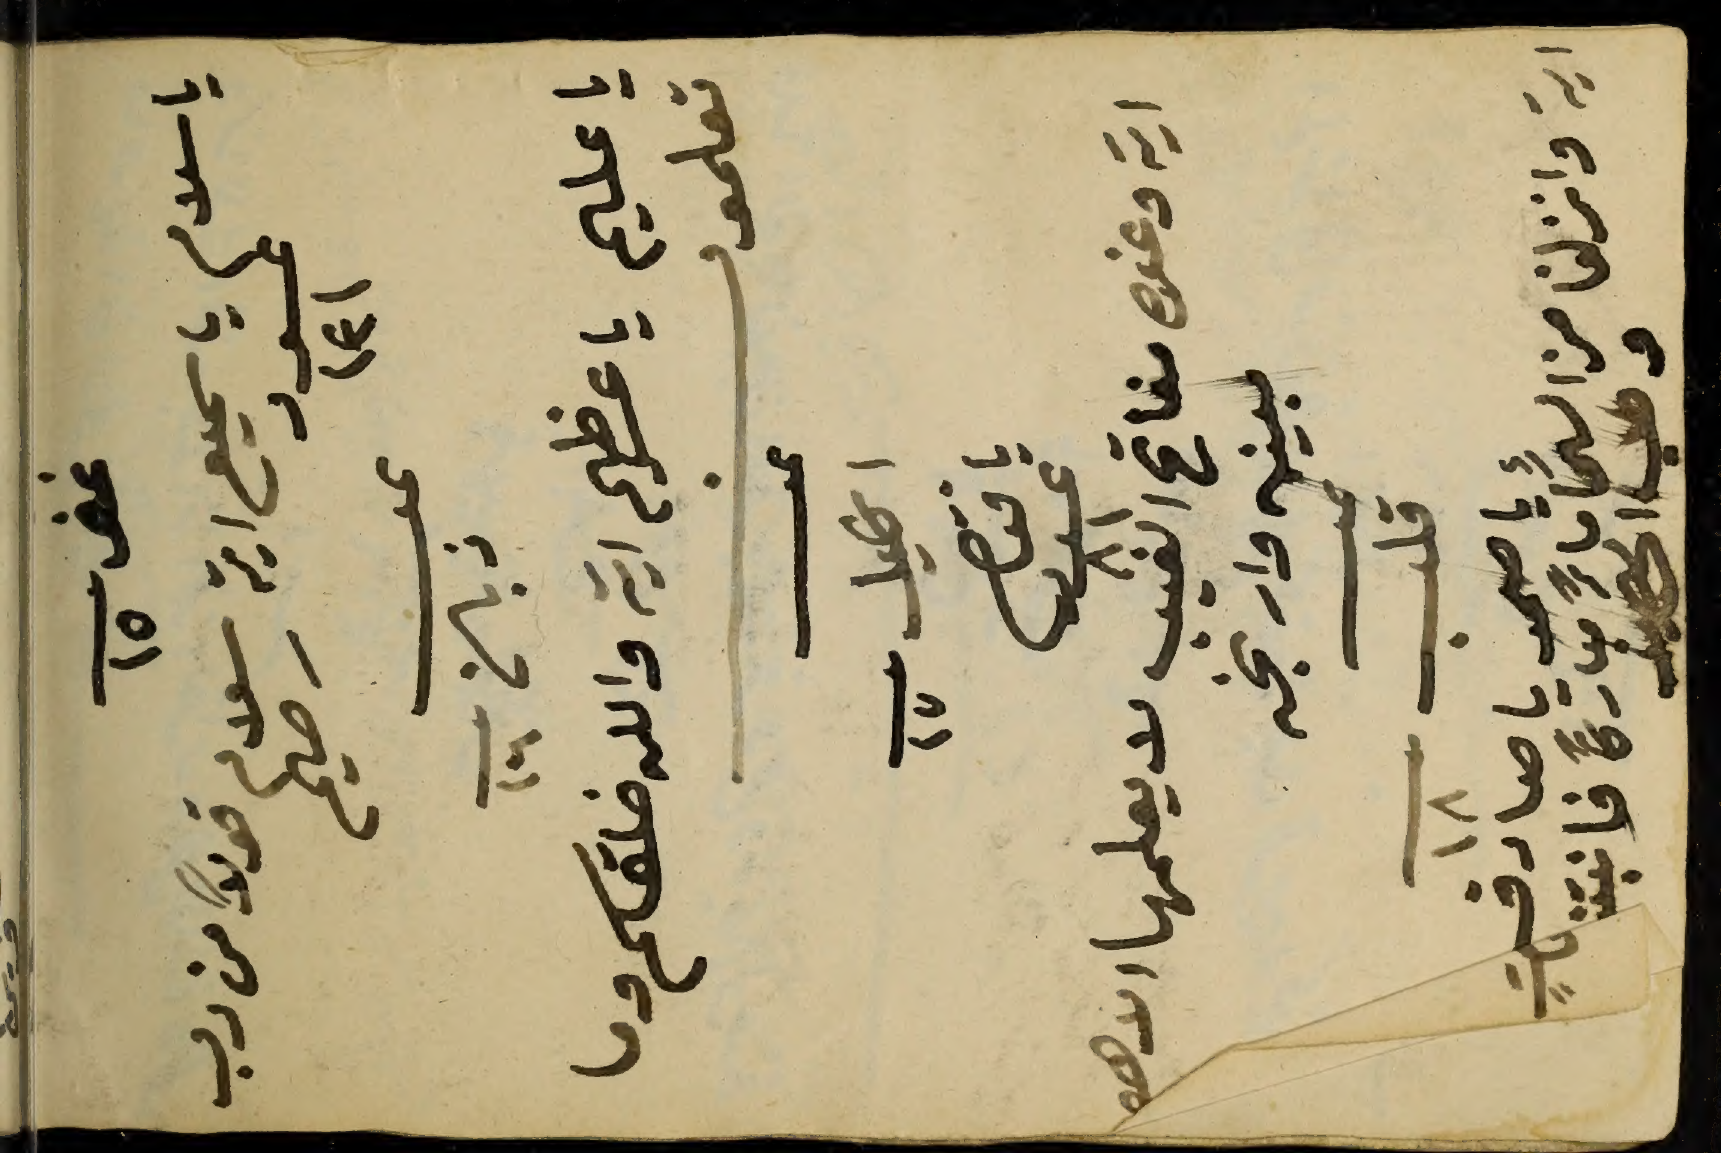 ١٥
يا سلام يا سميع اية سلام قولا من رب
رحيم
١٤١
عدد
١٦
يا عليم يا عظيم اية والله خلقكم وما
تعملون
عدد
اكليل
١٧
يا فتاح
اية وعنده مفاتح الغيب لا يعلمها الا هو
٨١
عدد
قلب
١٨
يا صمد يا صادق
اية وانزلنا من السما ماءً مباركًا فانبتنا
وحب الحصيد